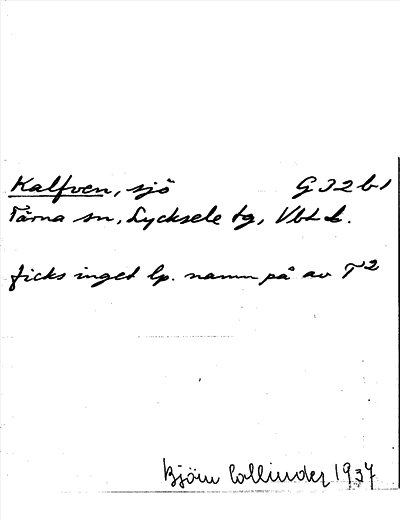 Kalfven, sjö G 32 b 1
Tärna sn, Lycksele tg, Vbtl L.
ficks inget lp. namn på av T²
Björn Collinder 1937